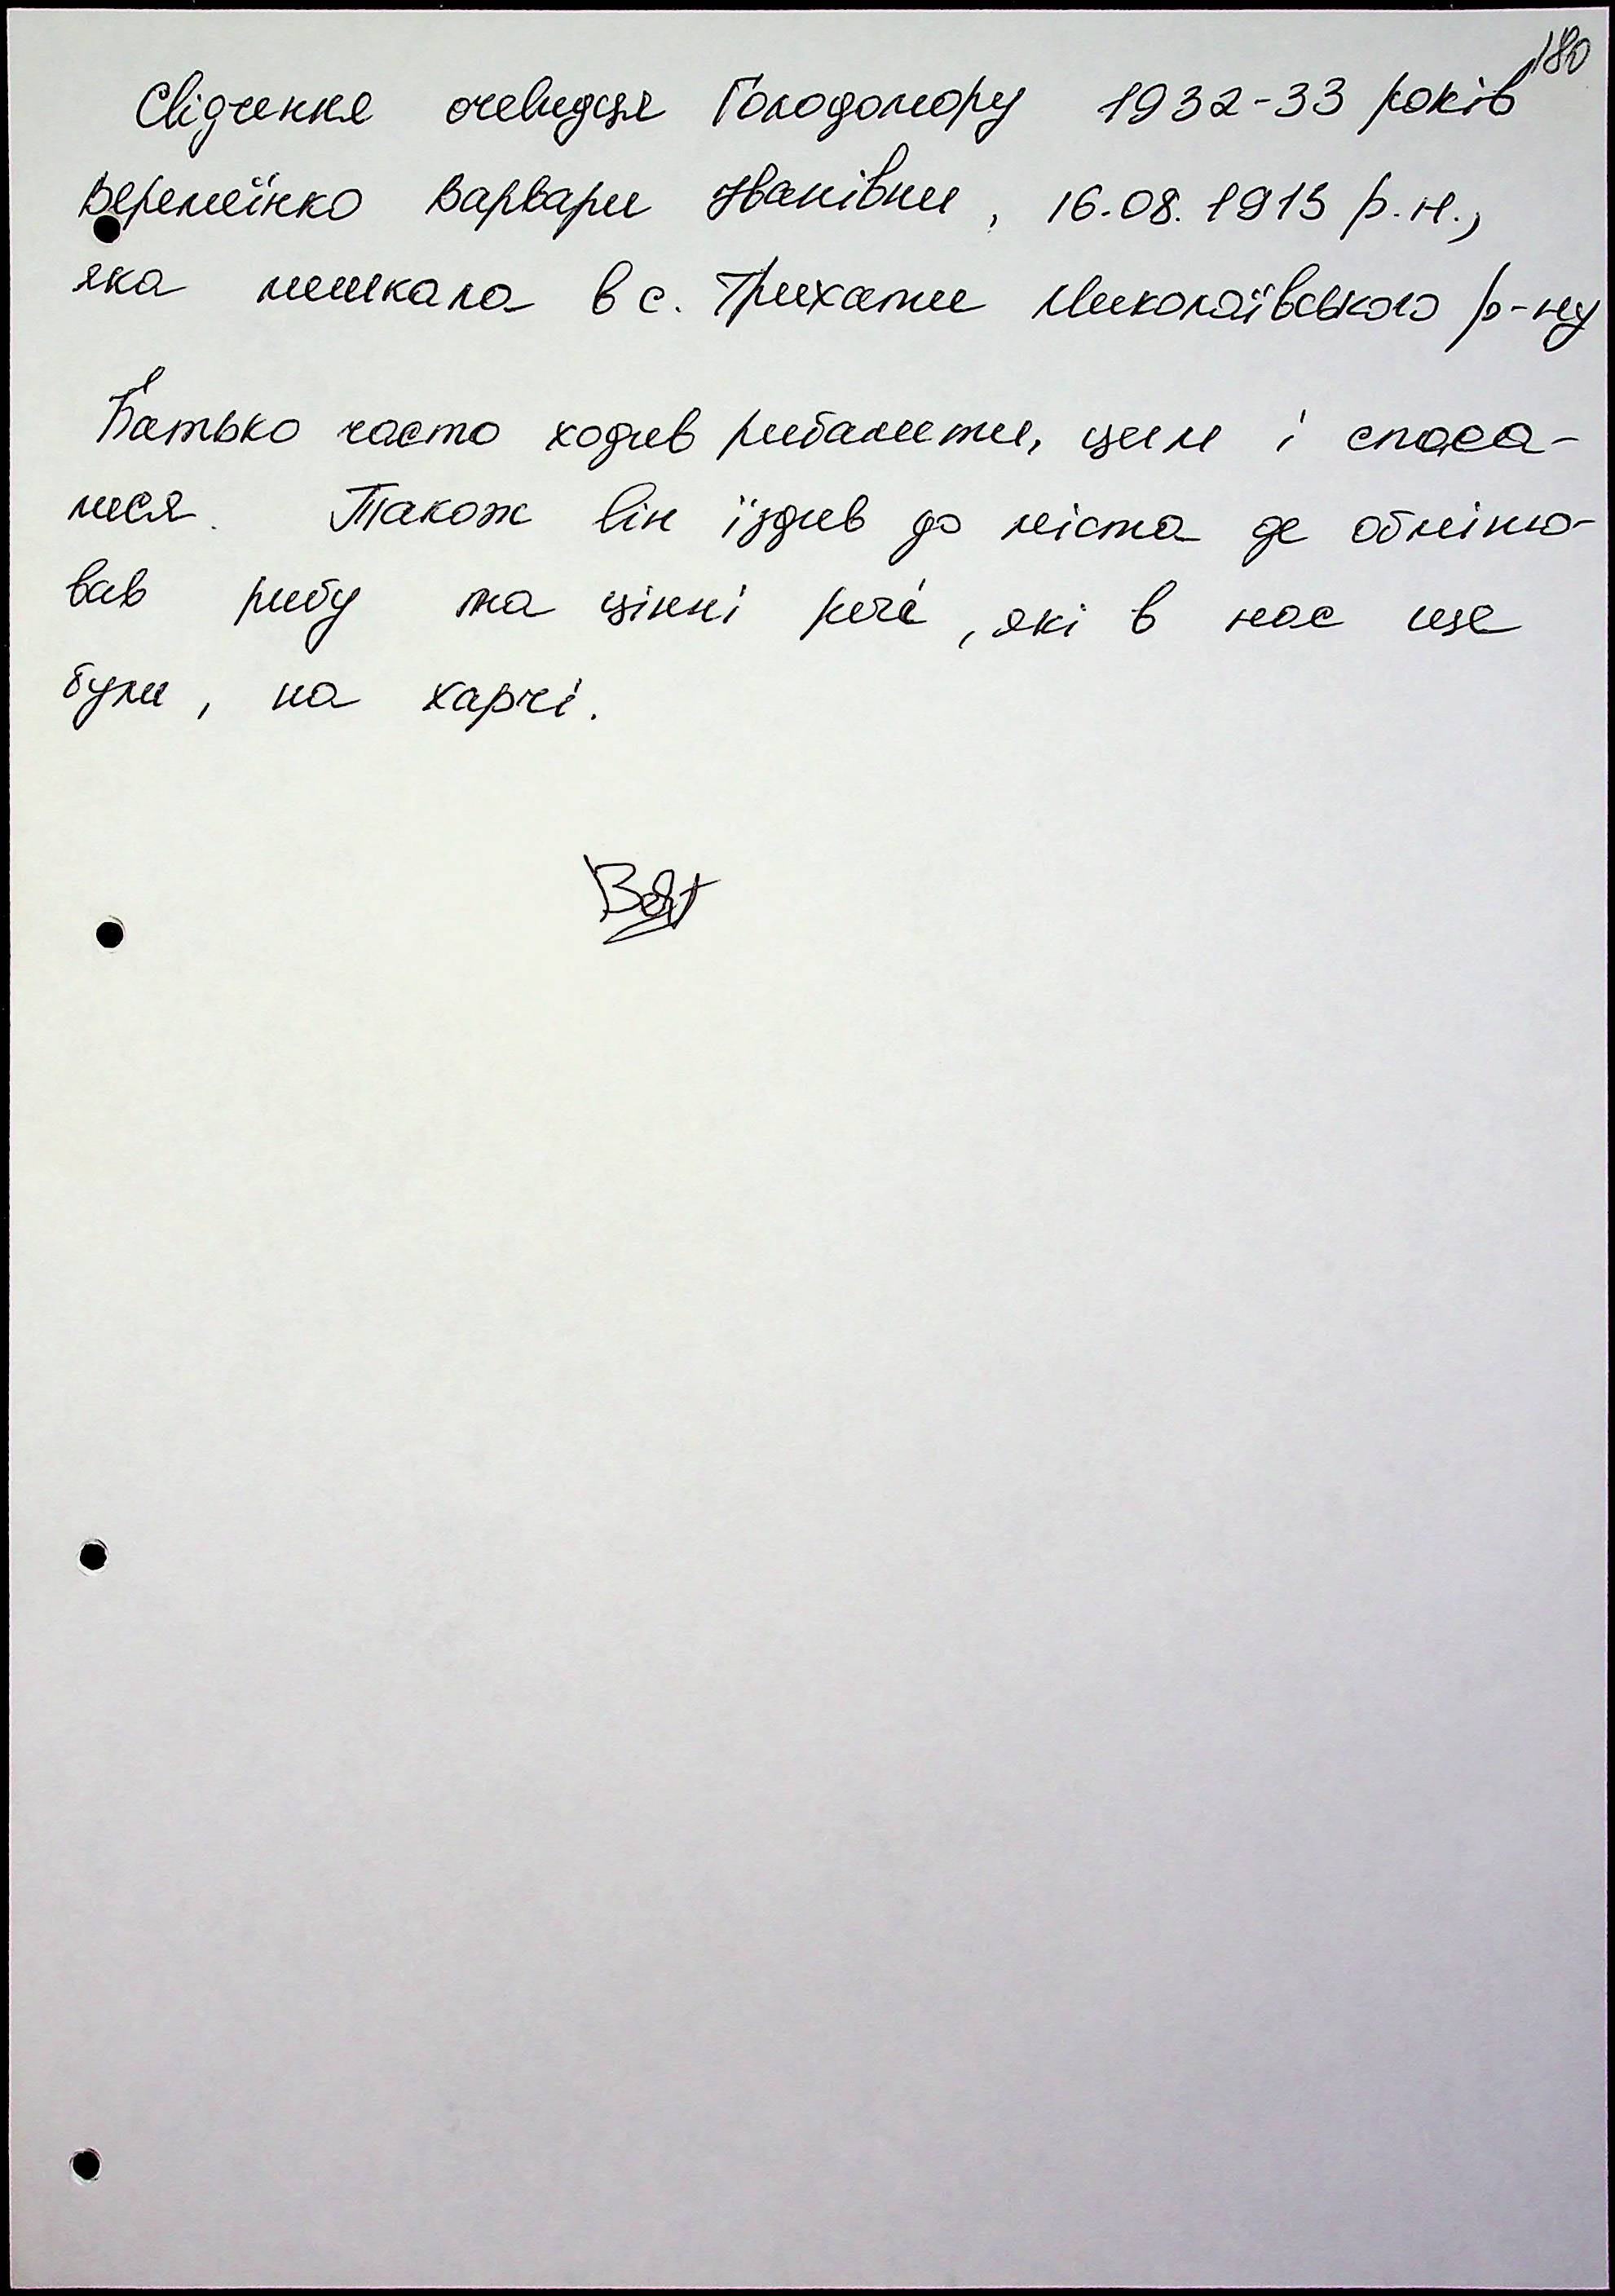 180
Свідчення очевидця Голодомору 1932-33 років
Веремеїнко Варвари Іванівни, 16.08.1915 р.н.,
яка мешкала в с. Трихати Миколаївського р-ну
Батько часто ходив рибалити, цим і спаса-
лися. Також він їздив до міста де обміню-
вав рибу та цінні речі, які в нас ще
були, на харчі.